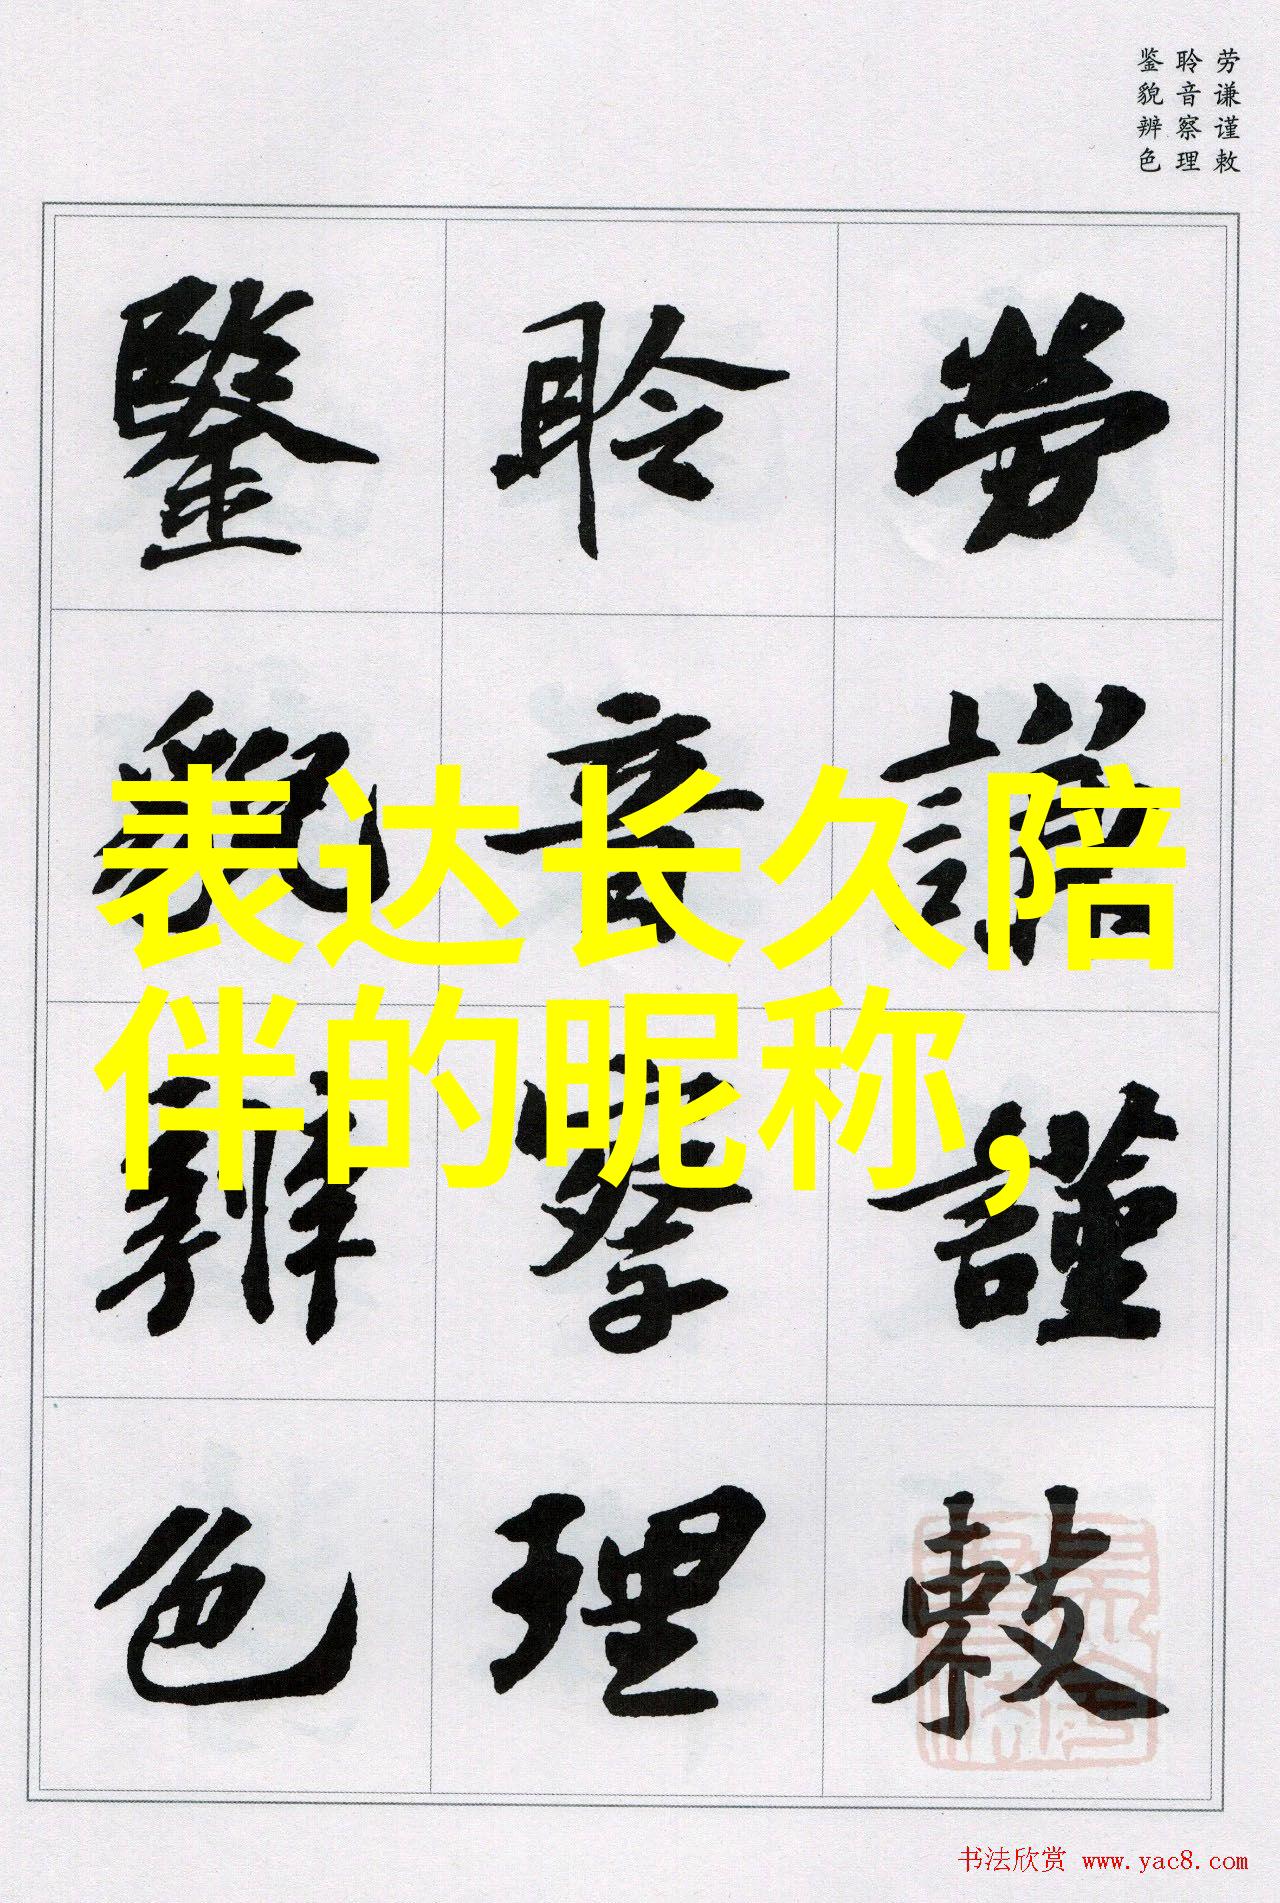 劳谦谨敕
聆音察理
鉴貌辨色
劳謙謹敕
聆音察理
鑒貌辨色
表达长久陪
伴的昵称，
书法欣赏 www.yac8.com